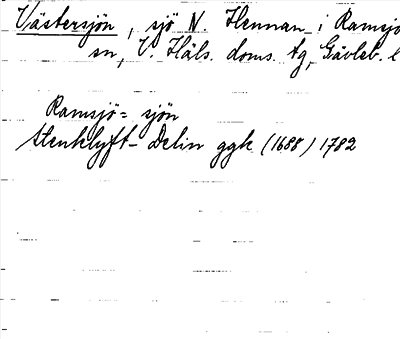 Västersjön, sjö N. Hennan i Ramsjö
sn, V. Häls. doms. tg, Gävleb. l
Ramsjö= sjön
Stenklyft- Delin ggk (1688) 1782